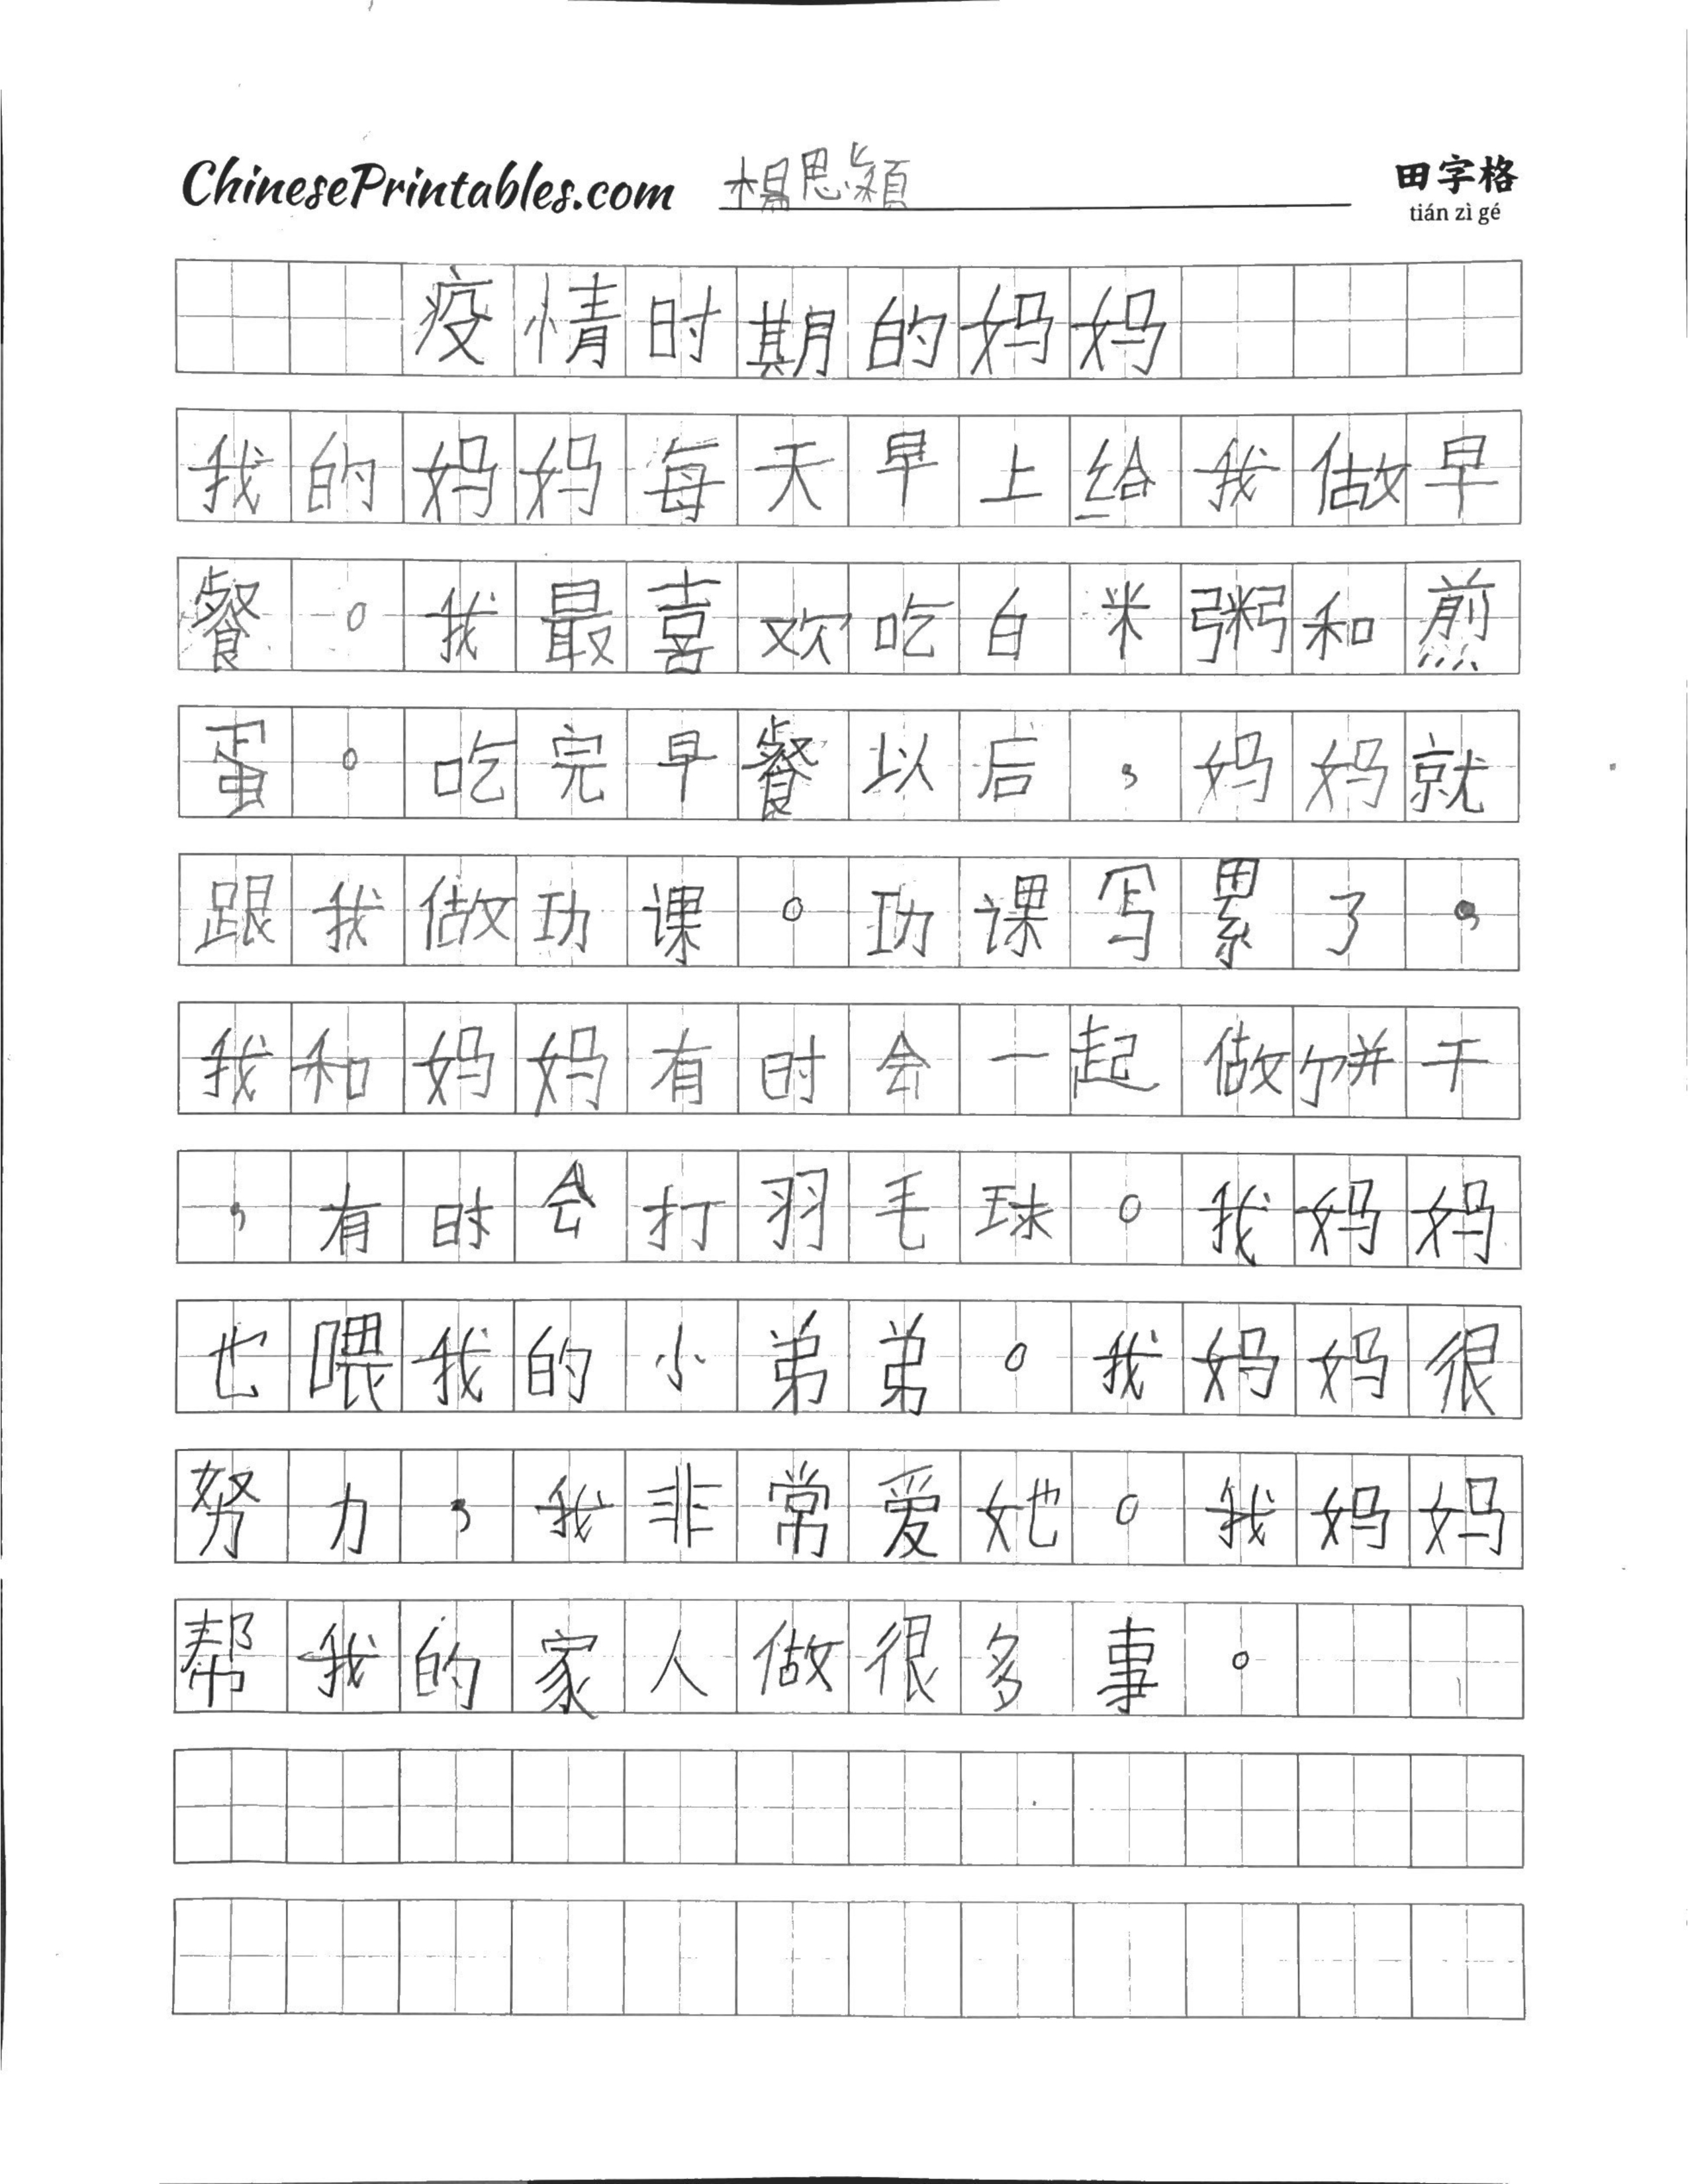 ChinesePrintables.com 楊思穎 田字格
tián zì gé
疫情时期的妈妈
我的妈妈每天早上给我做早
餐。我最喜欢吃白米粥和煎
蛋。吃完早餐以后，妈妈就
跟我做功课。功课写累了，
我和妈妈有时会一起做饼干
，有时会打羽毛球。我妈妈
也喂我的小弟弟。我妈妈很
努力，我非常爱她。我妈妈
帮我的家人做很多事。